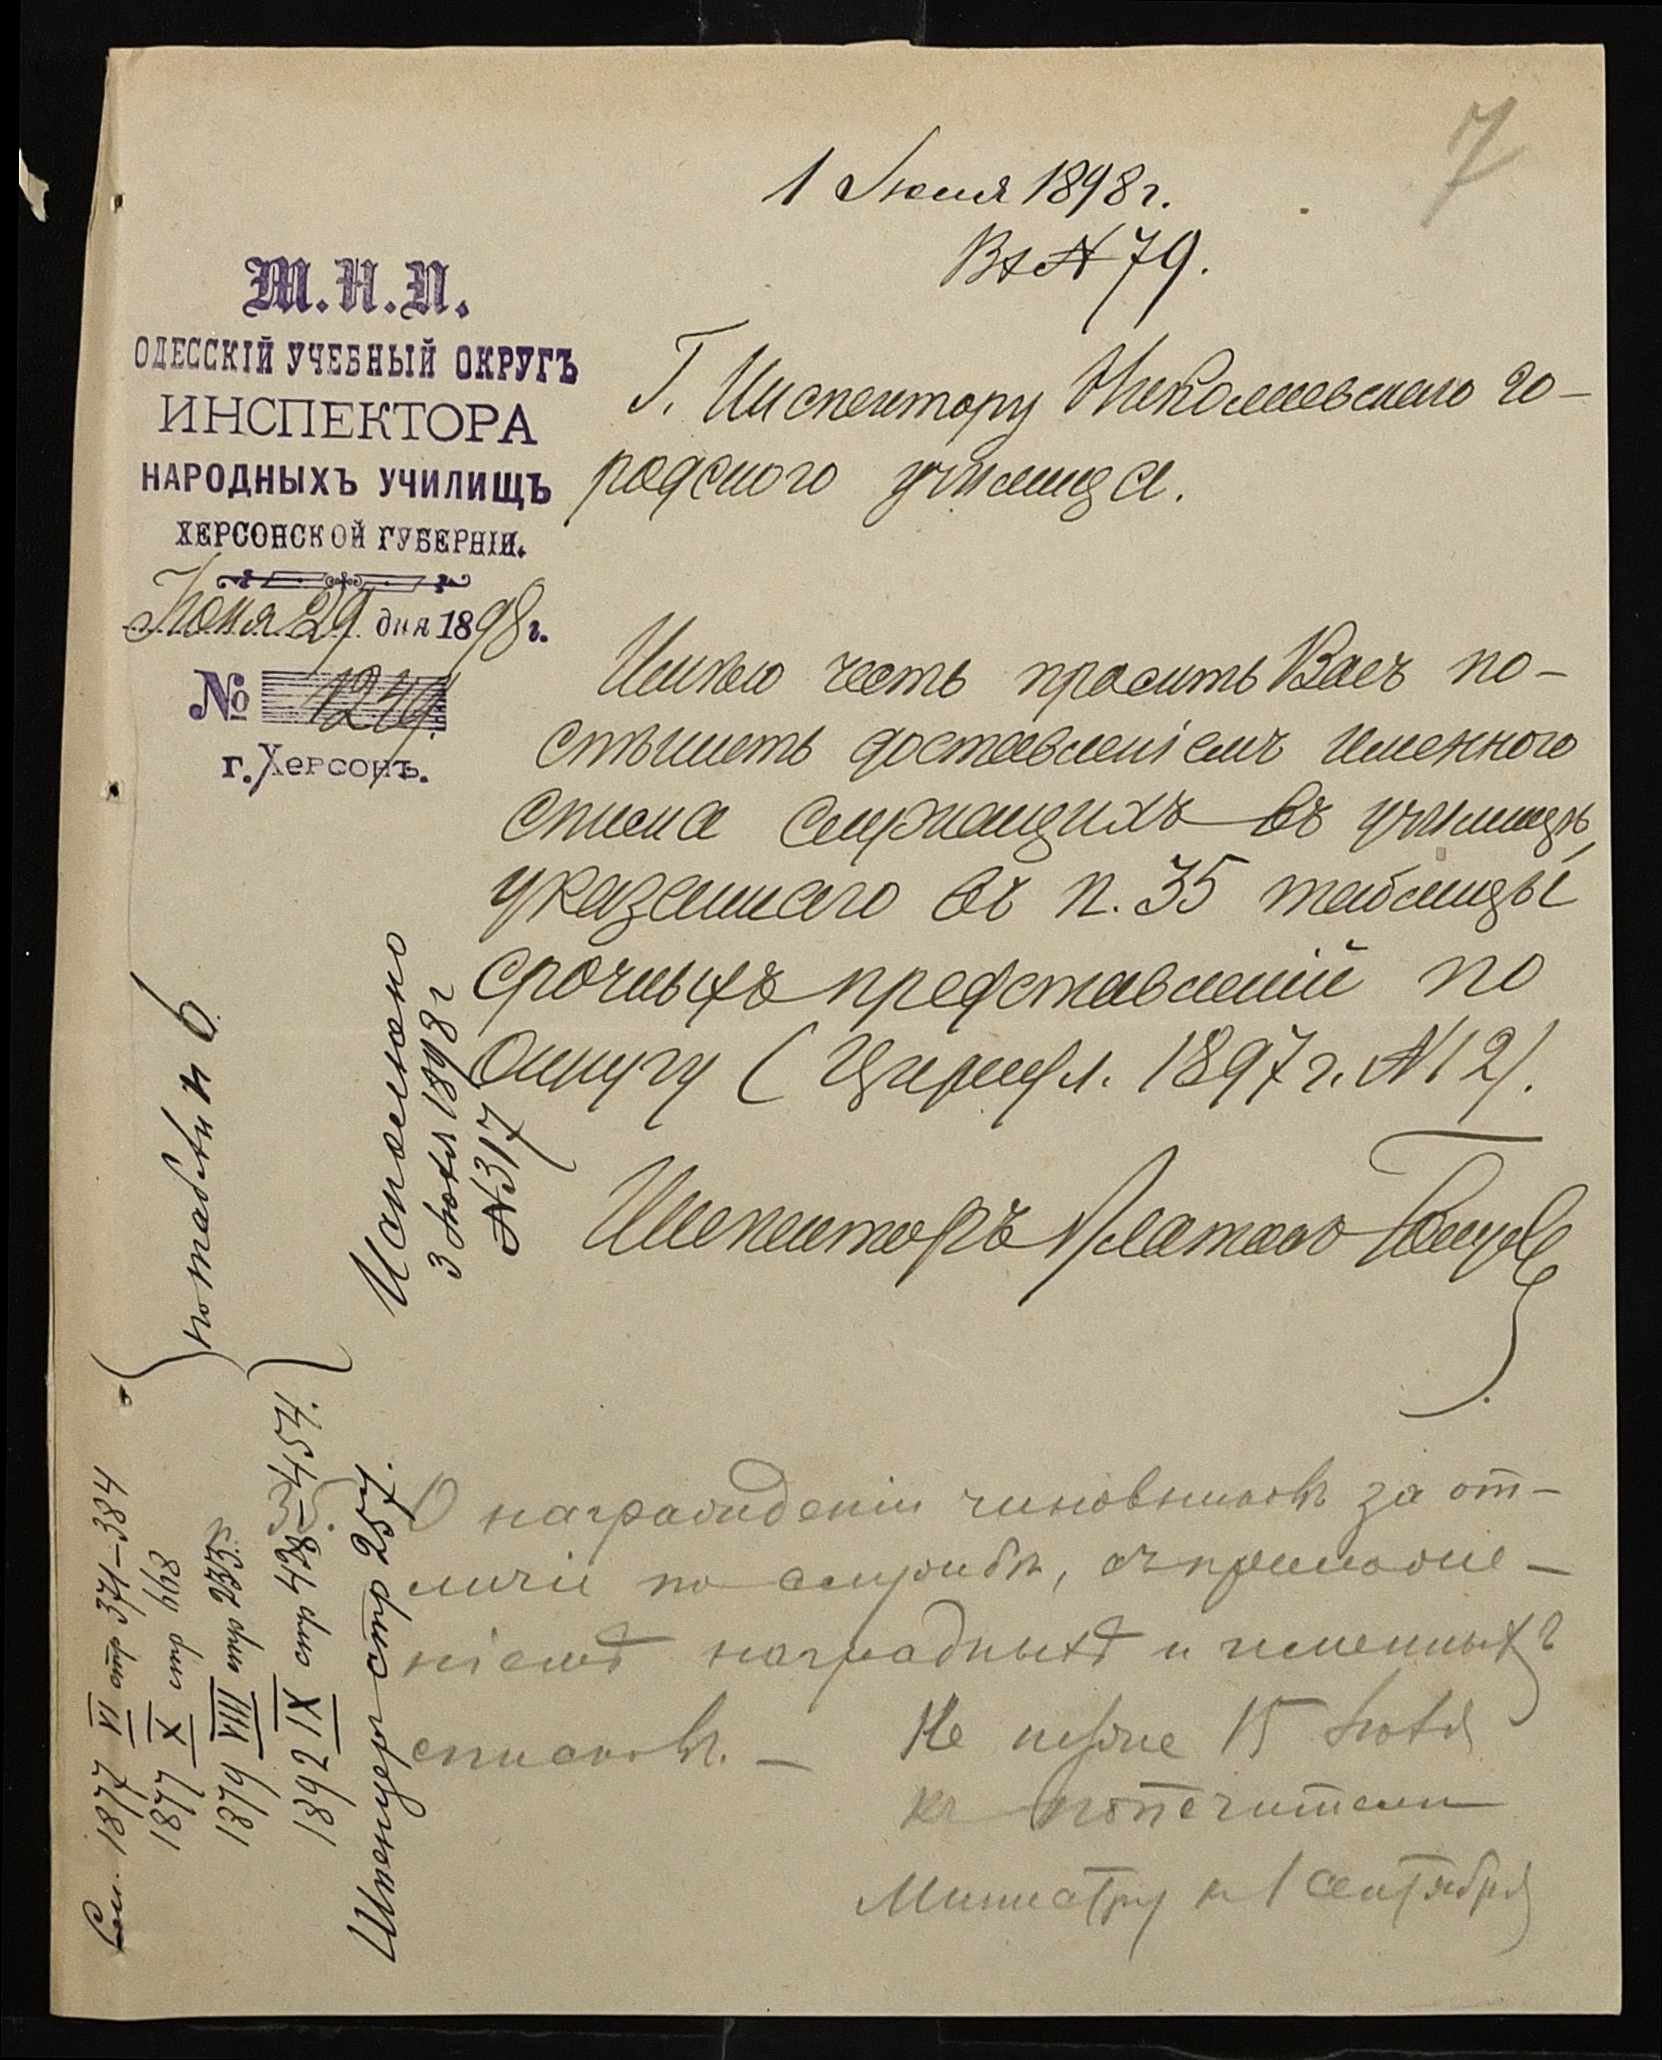 7
1 Июля 1898 г.
Вх № 79.
М. Н. П.
ОДЕССКІЙ УЧЕБНЫЙ ОКРУГЪ
ИНСПЕКТОРА
НАРОДНЫХЪ УЧИЛИЩЪ
ХЕРСОНСКОЙ ГУБЕРНІИ.
Іюня 29 дня 1898 г.
№ 1249.
г. Херсонъ.
Г. Инспектору Николаевскаго го-
родского училища.
Имѣю честь просить Васъ по-
спѣшить доставленіемъ именного
списка служащихъ въ училищѣ,
указаннаго въ п. 35 таблицы
срочныхъ представленій по
округу (Циркул. 1897 г. № 12).
Инспекторъ
Исполнено
3 Июля 1898 г
№ 317
по табели № 6.
См. 1877 VI стр 371–384
1877 X стр
1879 VIII стр
1892 IX стр
стр 257.
О награжденіи чиновниковъ за от-
личіе по службѣ, съ приложе-
ніемъ наградныхъ и именныхъ
списковъ. —
Не позже 15 Июля
къ попечителю
Министру к 1 сентября